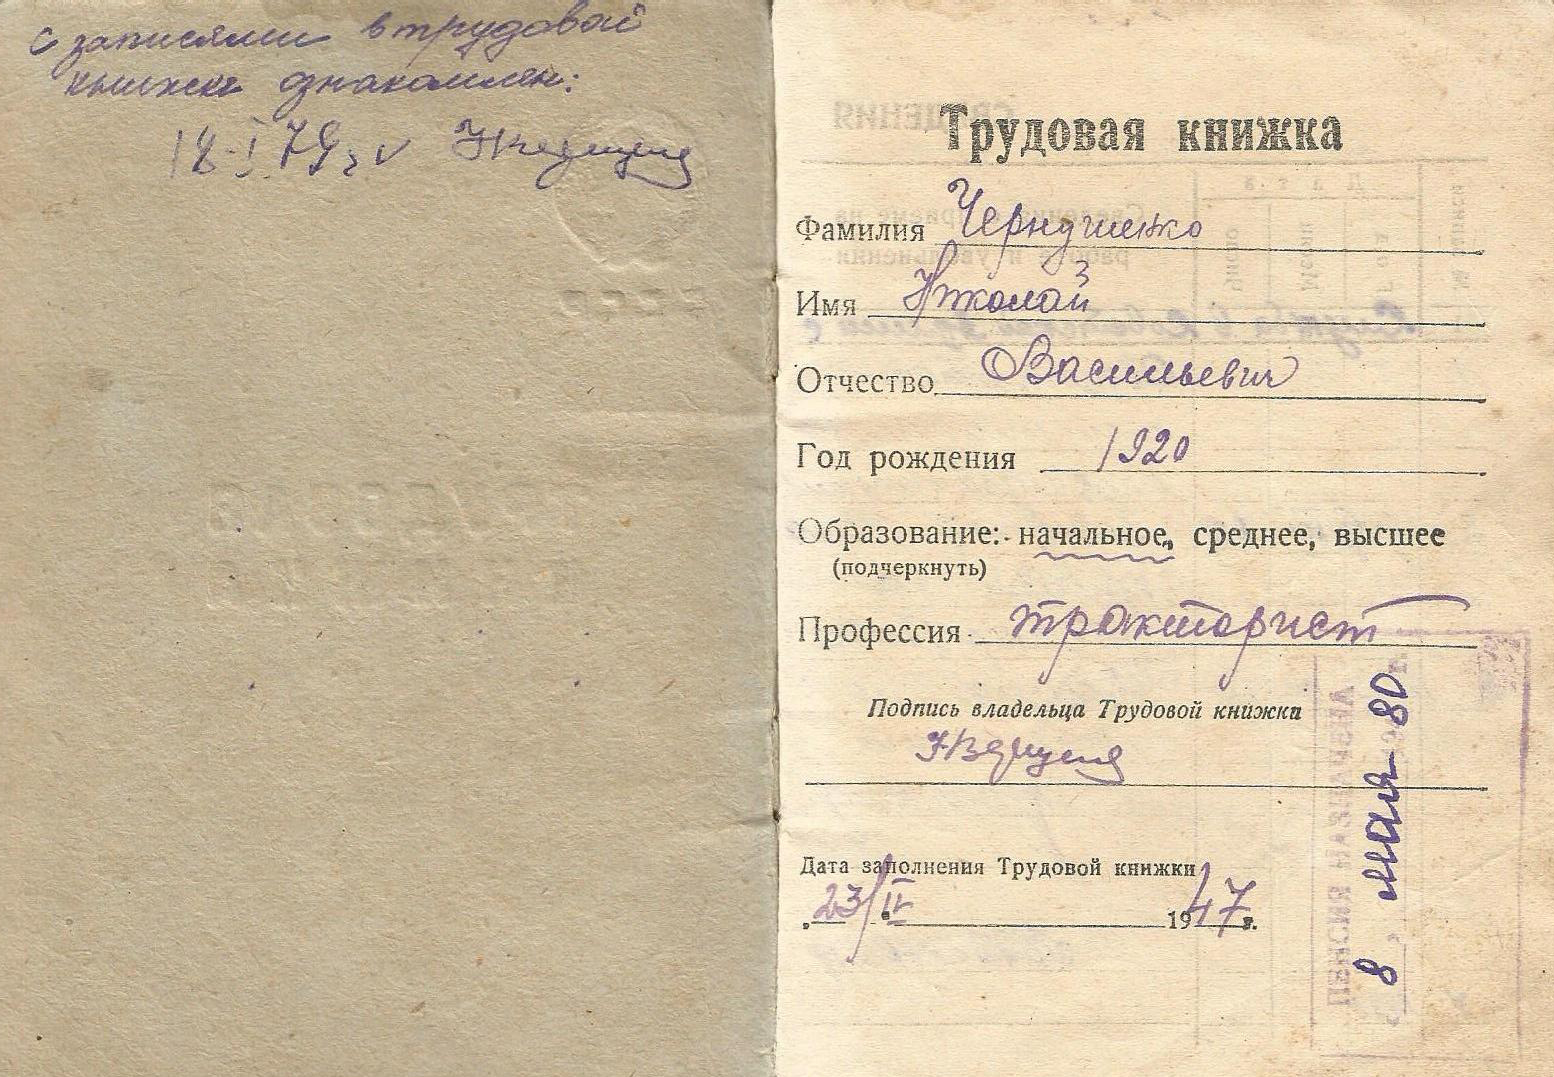 с записями в трудовой
книжке ознакомлен:
18.I.79г.
Трудовая книжка
Фамилия
Имя Николай
Отчество Васильевич
Год рождения 1920
Образование: начальное, среднее, высшее
(подчеркнуть)
Профессия тракторист
Подпись владельца Трудовой книжки
Дата заполнения Трудовой книжки
23/II 1947 г.
ПЕНСИЯ НАЗНАЧЕНА
8 мая 80 г.